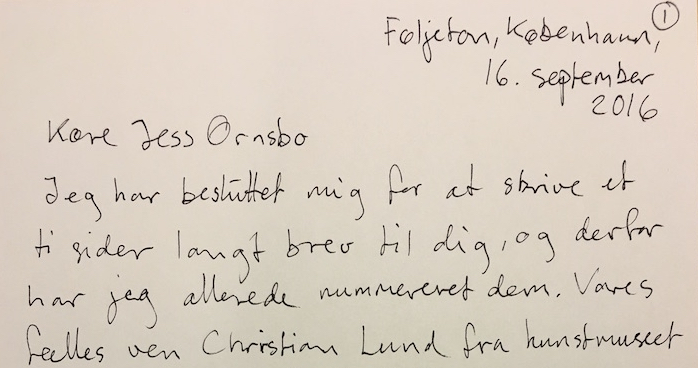 ①
Føljeton, København,
16. september
2016
Kære Jess Ørnsbo
Jeg har besluttet mig for at skrive et
ti sider langt brev til dig, og derfor
har jeg allerede nummereret dem. Vores
fælles ven Christian Lund fra kunstmuseet